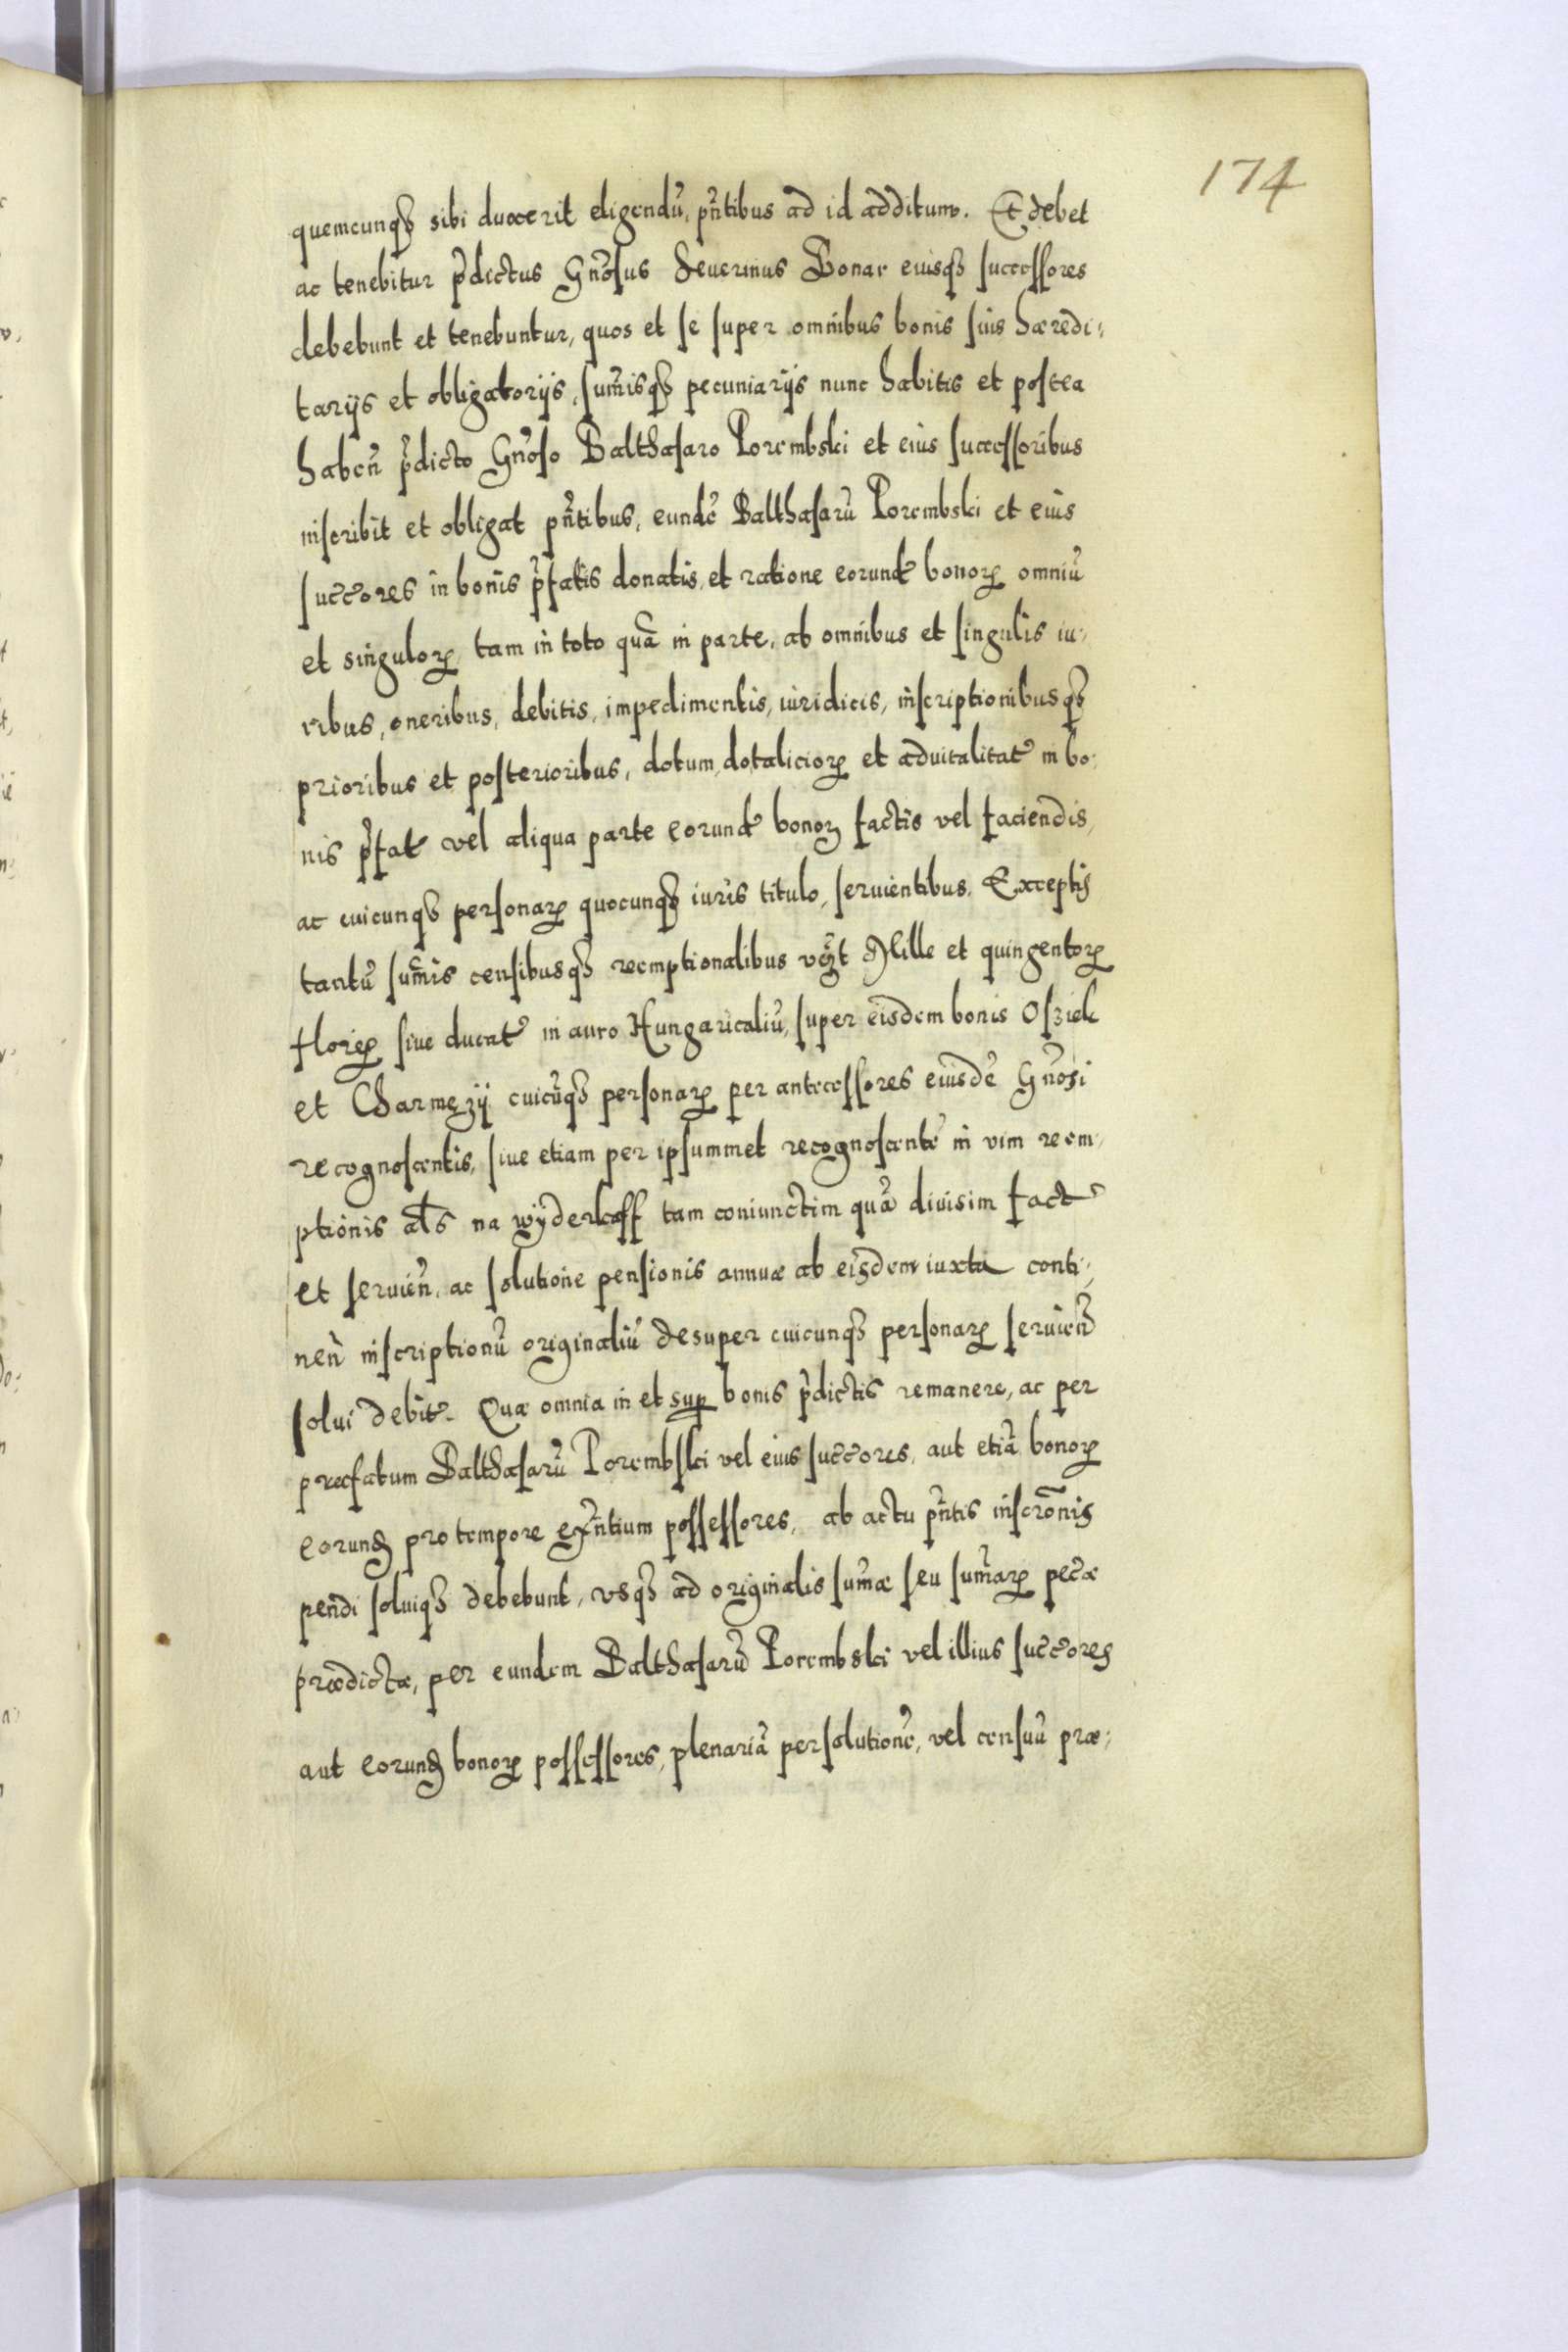 174
quemcunqꝫ sibi duxerit eligendũ, pñtibus ad id additum. Et debet
ac tenebitur p̃dictus Gñosus Seuerinus Bonar eiusqꝫ successores
debebunt et tenebuntur, quos et se super omnibus bonis suis hæredi⸗
tarijs et obligatorijs, sum̃isqꝫ pecuniarijs nunc habitis et postea
habeñ p̃dicto Gñoso Balthasaro Porembski et eius successoribus
inscribit et obligat pñtibus, eundẽ Balthasarũ Porembski et eius
succ̃ores in bonis p̃fatis donatis, et ratione eorund̃ bonoꝝ omniũ
et singuloꝝ, tam in toto quã in parte, ab omnibus et singulis iu⸗
ribus, oneribus, debitis, impedimentis, iuridicis, inscriptionibusqꝫ
prioribus et posterioribus, dotum, dotalicioꝝ et aduitalitat̃ in bo⸗
nis p̃fat̃ vel aliqua parte eorund̃ bonoꝝ factis vel faciendis,
ac cuicunqꝫ personaꝝ quocunqꝫ iuris titulo, seruientibus. Exceptis
tantũ sum̃is censibusqꝫ reemptionalibus vꝫt Mille et quingentoꝝ
floreꝝ siue ducat̃ in auro Hungaricaliũ, super eisdem bonis Osziek
et Charmęzij cuicũqꝫ personaꝝ per antecessores eiusdẽ Gñosi
recognoscentis, siue etiam per ipsummet recognoscentẽ in vim reem⸗
ptionis al̃s na wyderkaff tam coniunctim quã diuisim fact̃
et seruieñ, ac solutione pensionis annuæ ab eisdem iuxta conti⸗
neñ inscriptionũ originaliũ desuper cuicunqꝫ personaꝝ seruieñ
solui debit̃. Quæ omnia in et suꝑ bonis p̃dictis remanere, ac per
præfatum Balthasarũ Porembski vel eius succ̃ores, aut etiã bonoꝝ
eorunꝫ pro tempore exñtium possessores, ab actu pñtis inscrõnis
pendi soluiqꝫ debebunt, vsqꝫ ad originalis sum̃æ seu sum̃aꝝ pec̃æ
prædictæ, per eundem Balthasarũ Porembski vel illius succ̃ores
aut eorunꝫ bonoꝝ possessores, plenariã persolutionẽ, vel censuũ præ⸗